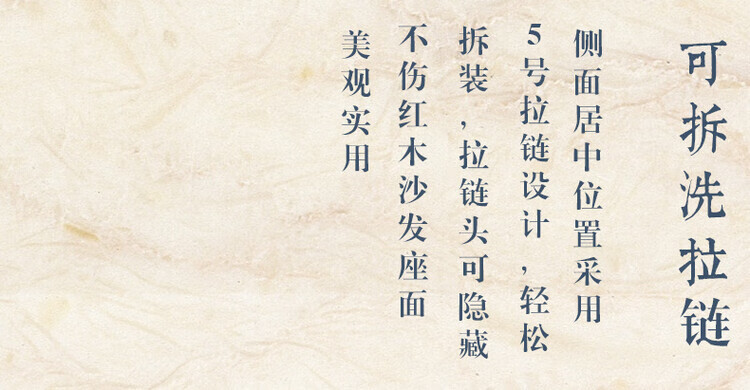 可拆洗拉链
侧面居中位置采用
5号拉链设计,轻松
拆装,拉链头可隐藏
不伤红木沙发座面
美观实用